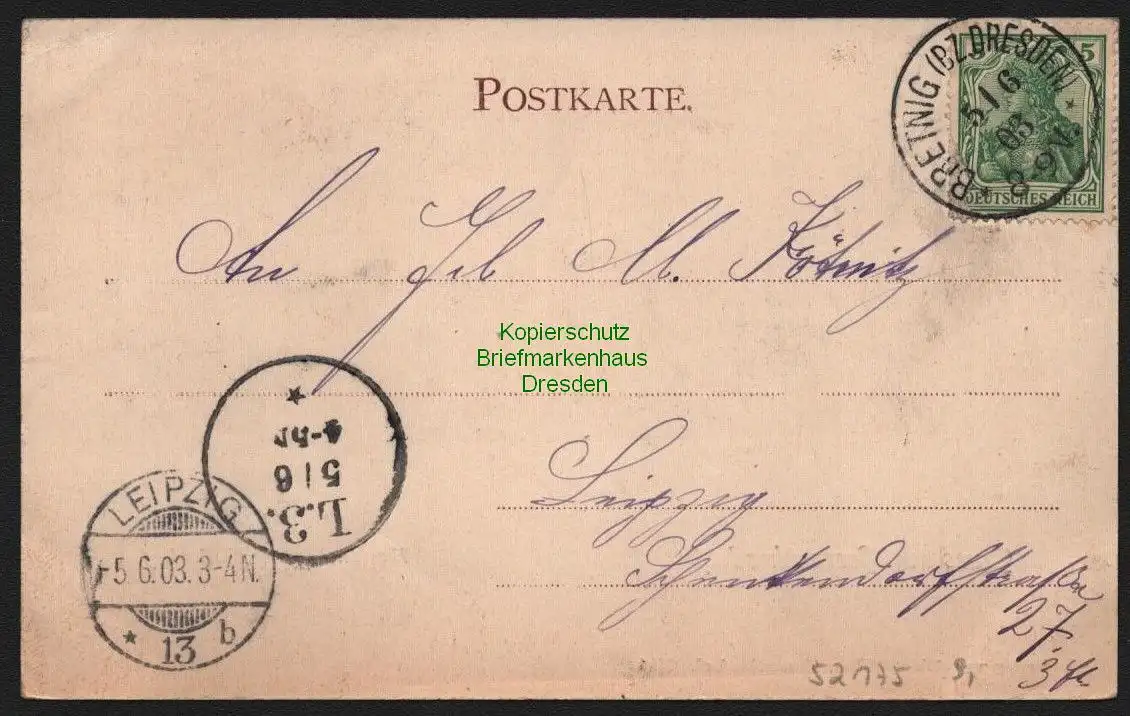 POSTKARTE.
BRETNIG (BZ.DRESDEN)
5/6
03
8-9V.
5
DEUTSCHES REICH
An M.
Kopierschutz
Briefmarkenhaus
Dresden
L.3.
5/6
LEIPZIG
5.6.03.3-4N.
13 b
Leipzig
Schenkendorfstraße
27.
52175